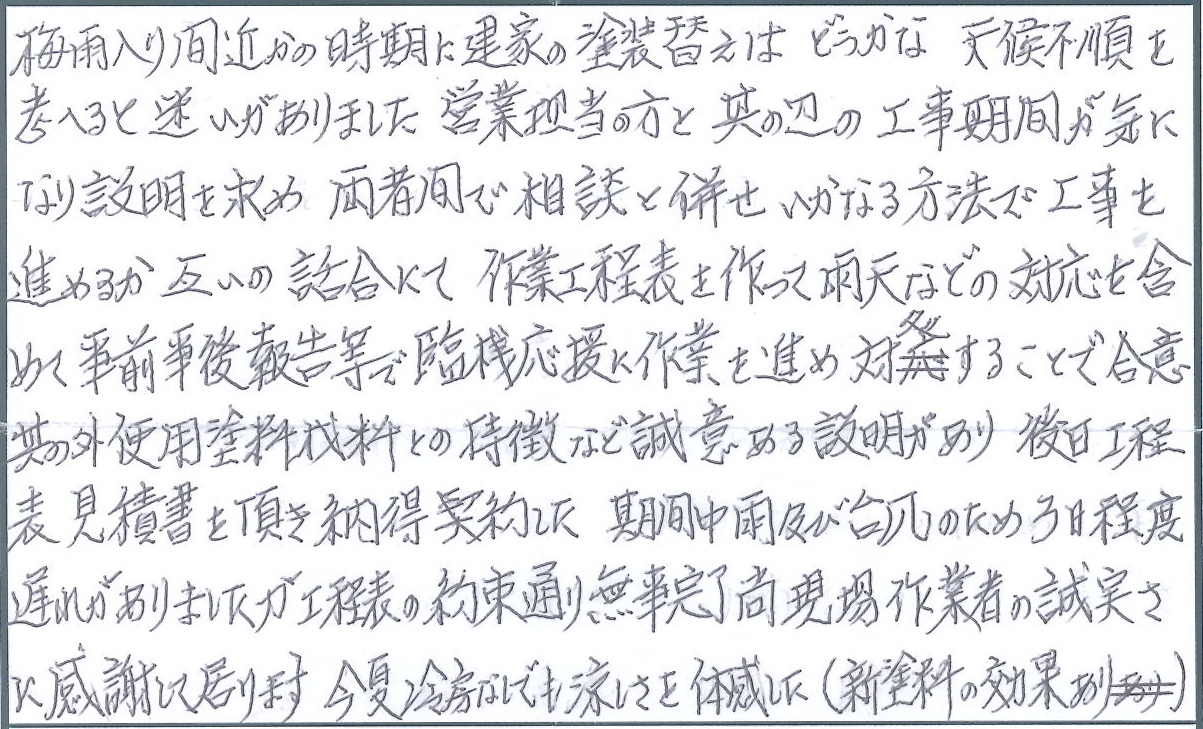 梅雨入り間近かの時期に建家の塗装替えは どうかな 天候不順を
考へると迷いがありました 営業担当の方と 其の辺の 工事期間が気に
なり説明を求め 両者間で相談と併せ いかなる方法で工事を
進めるか 互いの話合にて 作業工程表を作って雨天などの対応を含
めて事前事後報告等で臨機応援に作業を進め対処することで合意
其の外使用塗料材料との特徴など誠意ある説明があり 後日工程
表見積書を頂き納得契約した 期間中雨及び台風のため3日程度
遅れがありましたが工程表の約束通り無事完了尚現場作業者の誠実さ
に感謝して居ります 今夏冷房なしでも涼しさを体感した(新塗料の効果あり)